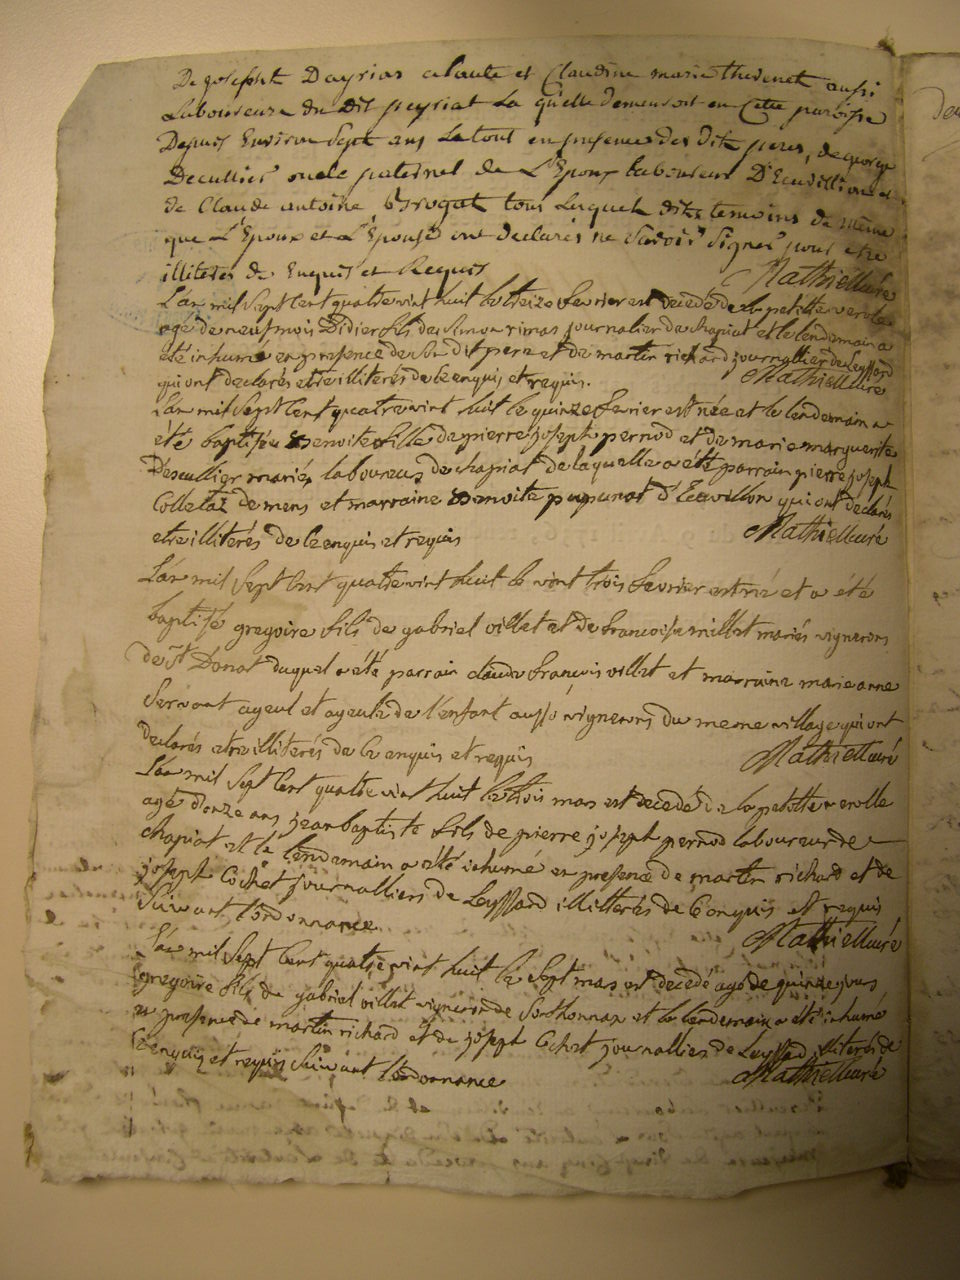 De joseph Dayriat alaute et Claudine marie thevenet aussi
Laboureurs du dit peyriat La quelle demeuroit en Cette paroisse
Depuis Environ Sept ans Le tout en presence des dits peres, de
Decuillier oncle paternel de L'Epoux laboureur D'Ecuvillion et
de Claude antoine brogat tous Lesquels dits temoins de même
que L'Epoux et L'Epouse ont declarés ne Savoir Signer pour etre
illiterés de Enquis et Requis Mathieu curé
L'an mil Sept Cent quatrevint huit le treize fevrier est decedé de la petitte verole
agé de neuf mois Didier fils de Simon rimas journalier de chapiat et le lendemain a
été inhumé en presence de Son dit pere et de martin richard journallier de Leyssard
qui ont declarés etre illiterés de ce enquis et requis. Mathieu curé
L'an mil Sept Cent quatrevint huit le quinze fevrier est née et le lendemain a
été baptisée Benoite fille de pierre joseph pernod et de marie marguerite
Descullier mariés laboureurs de chapiat de laquelle a été parrain pierre joseph
Colletaz de mens et marraine Benoite d'Ecuvillon qui ont declarés
etre illiterés de ce enquis et requis Mathieu curé
L'an mil Sept Cent quatrevint huit le vint trois fevrier est né et a été
baptisé gregoire fils de gabriel villet et de francoise millet mariés vignerons
de St Donat duquel a été parrain claude françois villet et marraine marie anne
Servant ayeul et ayeule de l'enfant aussi vignerons du meme village qui ont
declarés etre illiterés de ce enquis et requis Mathieu curé
L'an mil Sept Cent quatre vint huit le trois mars est decedé de la petitte verolle
agé d'onze ans jean baptiste fils de pierre joseph pernod laboureur de
chapiat et le lendemain a été inhumé en presence de martin richard et de
joseph Cochet journalliers de Leyssard illitterés de ce enquis et requis
Suivant l'ordonnance Mathieu curé
L'an mil Sept Cent quatre vint huit le Sept mars est decedé agé de quinze jours
gregoire fils de gabriel villet vigneron de Serthonnax et le lendemain a été inhumé
en presence de martin richard et de joseph Cochet journalliers de Leyssard illiterés de
Ce enquis et requis Suivant l'ordonnance Mathieu curé